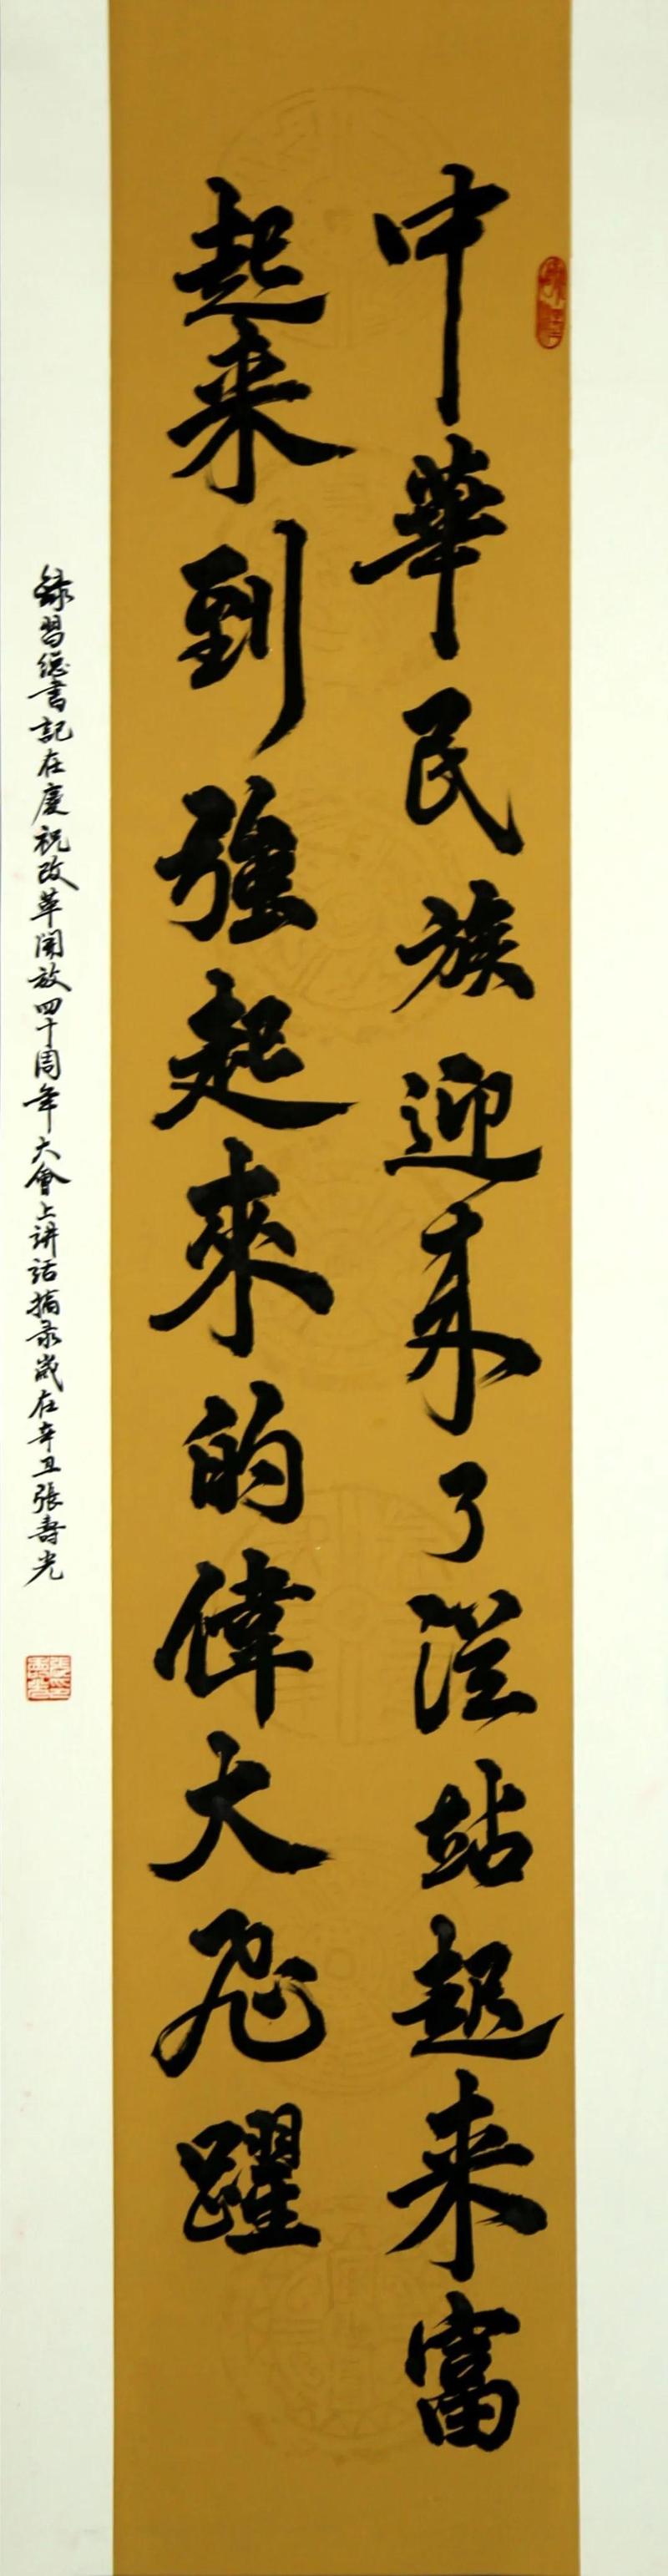 中華民族迎来了從站起来富
起来到強起來的偉大飛躍
録習總書記在慶祝改革開放四十周年大會上讲話摘录歲在辛丑張壽光